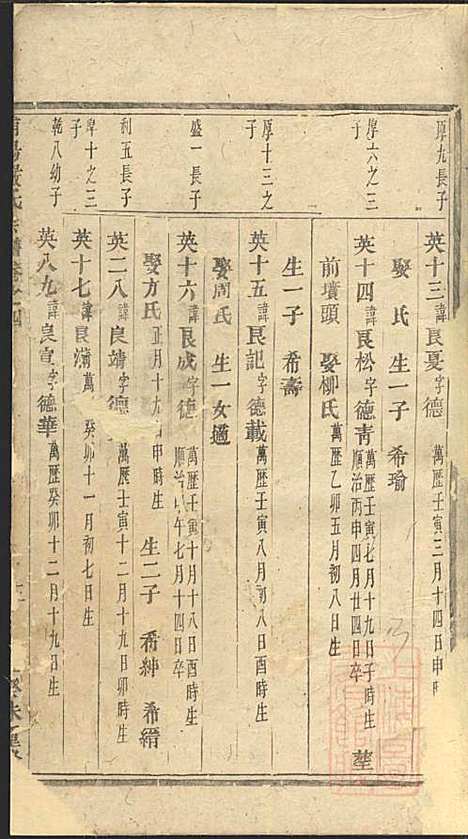 厚九長子
英十三 諱良夏 字德 萬歷壬寅三月十四日申
娶 氏 生一子 希瑜
厚六之三子
英十四 諱良松 字德青 萬歷壬寅七月十九日子時生 順治丙申四月廿四日卒 塟
前墳頭 娶柳氏 萬歷乙卯五月初八日生
生一子 希壽
厚十三之子
英十五 良記 字德載 萬歷壬寅八月初八日酉時生
娶周氏 生一女適
盛一長子
英十六 諱良成 字德 萬歷壬寅十月十八日酉時生 順治 午七月十四日卒
娶方氏 正月十九 申時生 生二子 希紳 希縉
利五長子
英二八 諱良靖 字德 萬歷壬寅十二月十九日卯時生
厚十之三子
英十七 諱良 萬 癸卯十一月初七日生
乾八幼子
英八九 諱良宣 字德華 萬歷癸卯十二月十九日生